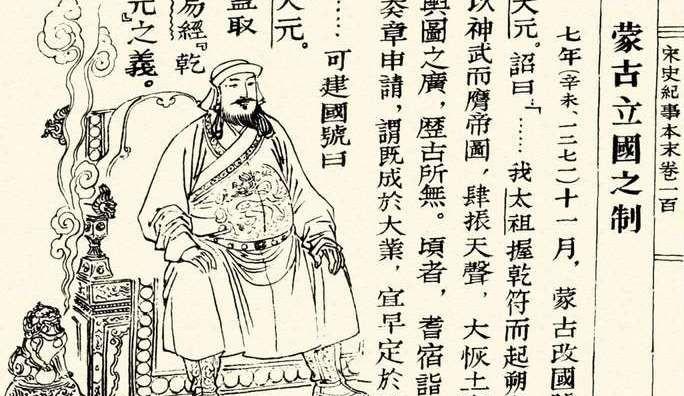 宋史紀事本末卷一百
蒙古立國之制
七年(辛未、一二七二)十一月,蒙古改國
大元。詔曰:「……我太祖握乾符而起朔
以神武而膺帝圖,肆振天聲,大恢土
輿圖之廣,歷古所無。頃者,耆宿詣
奏章申請,謂既成於大業,宜早定於
……可建國號曰
大元。
蓋取
易經』乾
元』之義。